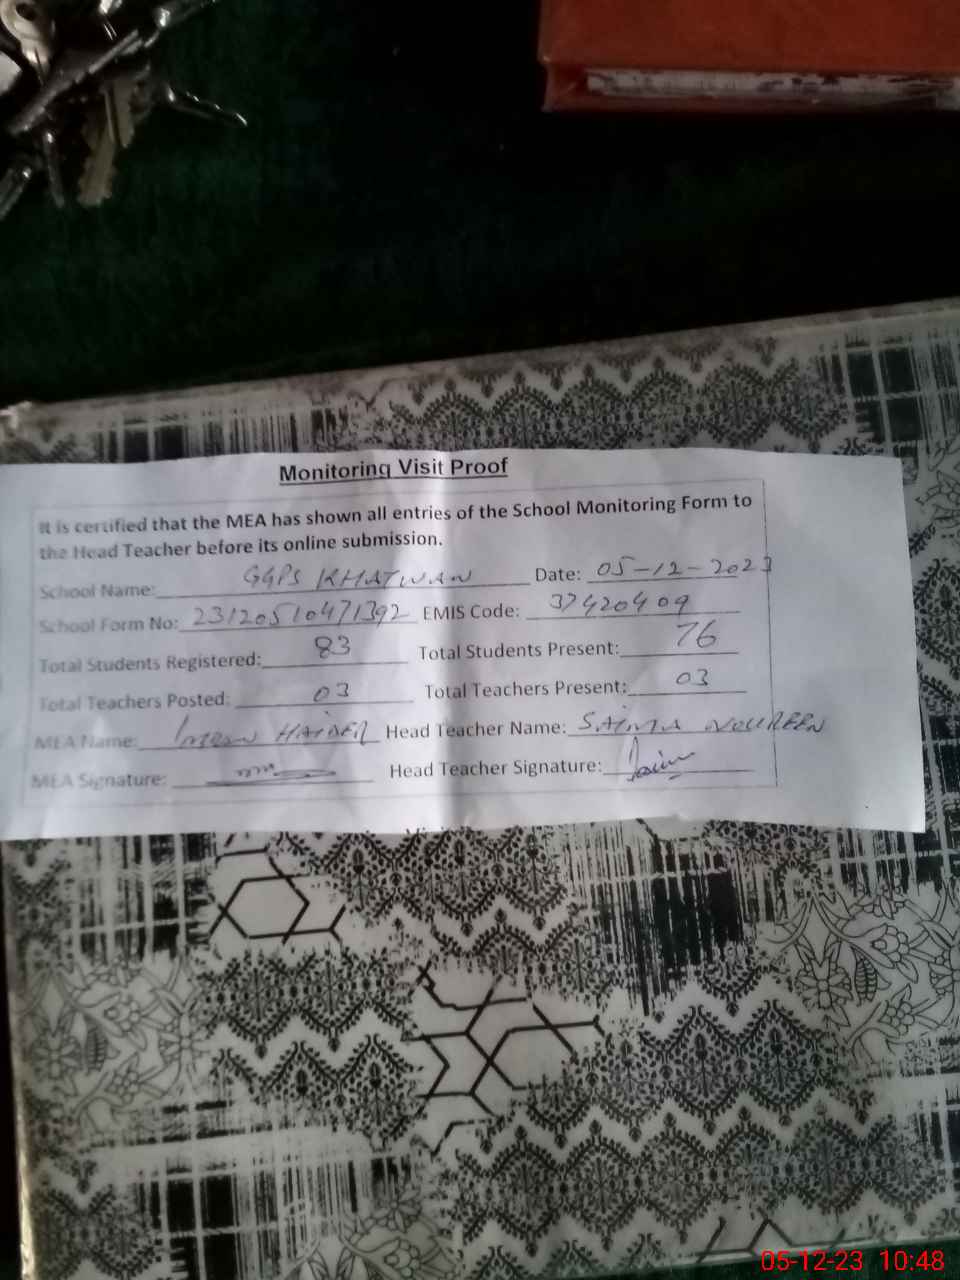 Monitoring Visit Proof
It is certified that the MEA has shown all entries of the School Monitoring Form to
the Head Teacher before its online submission.
School Name: GGPS KHATWAN Date: 05-12-2023
School Form No: 23120510471392 EMIS Code: 37420409
Total Students Registered: 83 Total Students Present: 76
Total Teachers Posted: 03 Total Teachers Present: 03
MEA Name: Imran HAIDER Head Teacher Name: SAIMA NOUREEN
MEA Signature: Head Teacher Signature:
05-12-23 10:48